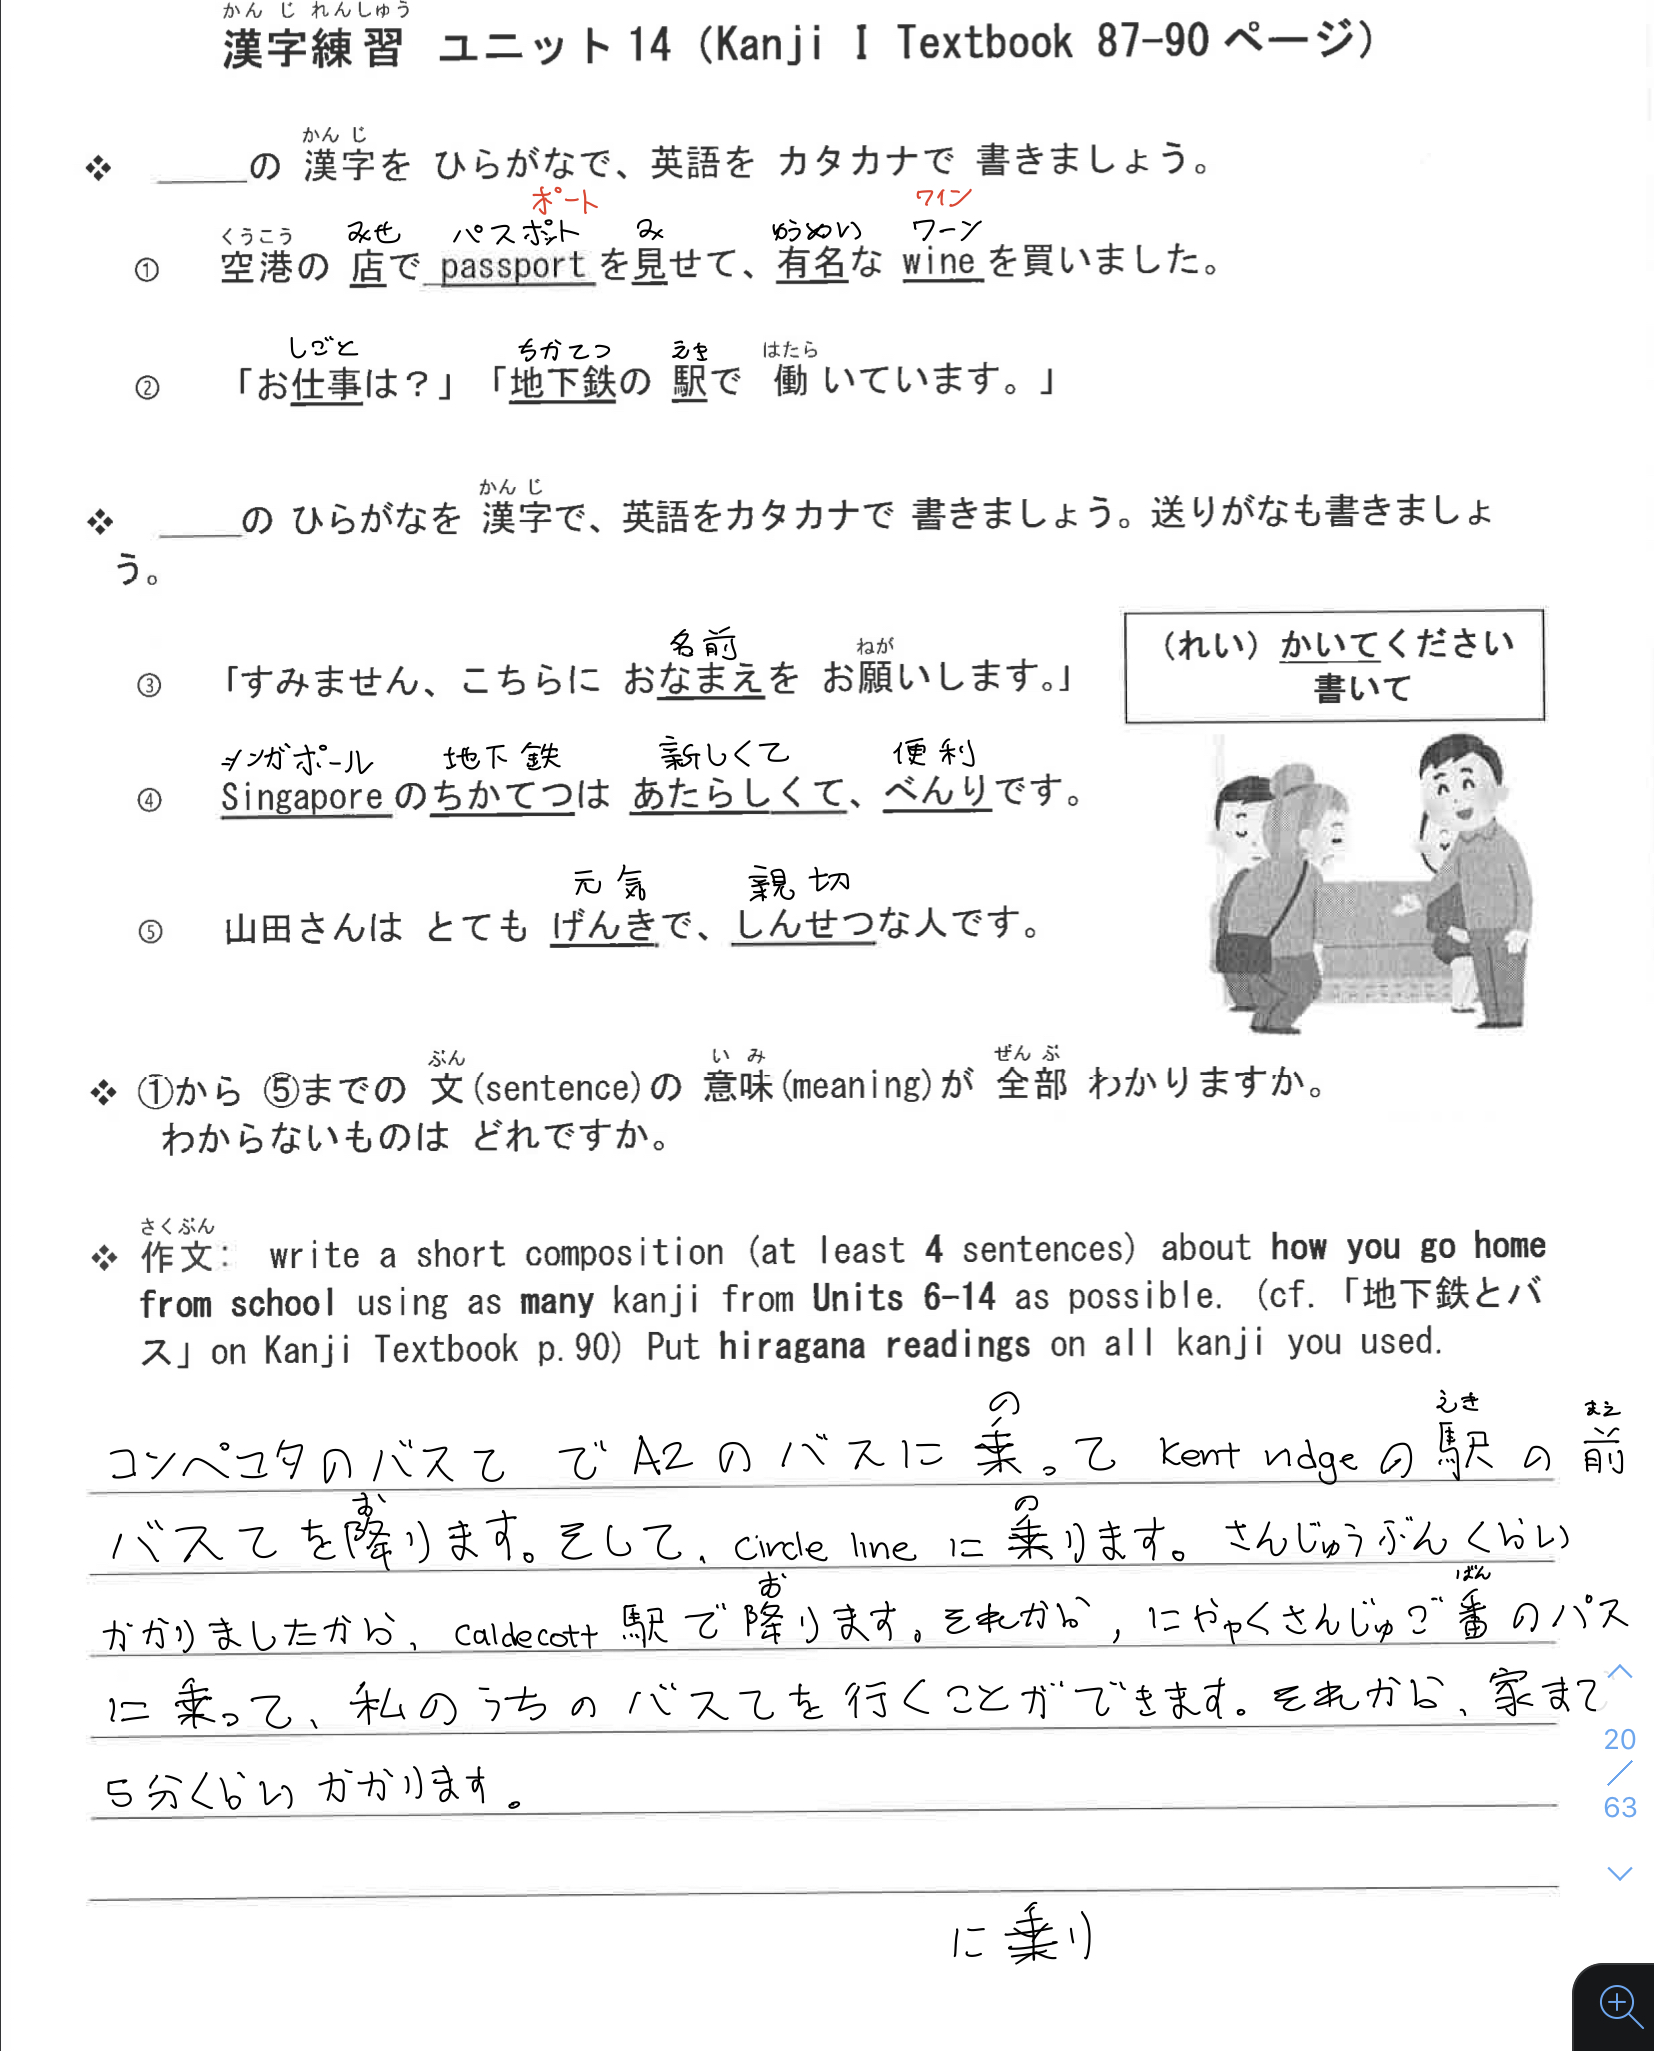 かん じ れんしゅう
漢字練習 ユニット 14 (Kanji I Textbook 87-90 ページ)
かん じ
❖ ____の 漢字を ひらがなで、英語を カタカナで 書きましょう。
ポート ワイン
くうこう みせ パスポット み ゆうめい ワーン
① 空港の 店で passport を見せて、有名な wine を買いました。
しごと ちかてつ えき はたら
② 「お仕事は？」「地下鉄の 駅で 働 いています。」
かん じ
❖ ____の ひらがなを 漢字で、英語をカタカナで 書きましょう。送りがなも書きましょ
う。
名前 ねが
③ 「すみません、こちらに おなまえを お願いします。」
(れい) かいてください
書いて
シンガポール 地下鉄 新しくて 便利
④ Singapore のちかてつは あたらしくて、べんりです。
元気 親切
⑤ 山田さんは とても げんきで、しんせつな人です。
ぶん い み ぜん ぶ
❖ ①から ⑤までの 文(sentence)の 意味(meaning)が 全部 わかりますか。
わからないものは どれですか。
さくぶん
❖ 作文: write a short composition (at least 4 sentences) about how you go home
from school using as many kanji from Units 6-14 as possible. (cf.「地下鉄とバ
ス」on Kanji Textbook p.90) Put hiragana readings on all kanji you used.
の えき まえ
コンペユタのバスて で A2 のバスに 乗って Kent ridge の駅の前
お の
バスてを降ります。そして、circle line に乗ります。さんじゅうぶんくらい
お ばん
かかりましたから、caldecott 駅で降ります。それから、にゃゃくさんじゅご番のバス
に乗って、私のうちのバスてを行くことができます。それから、家まで
5分くらいかかります。
に乗り
20
/
63